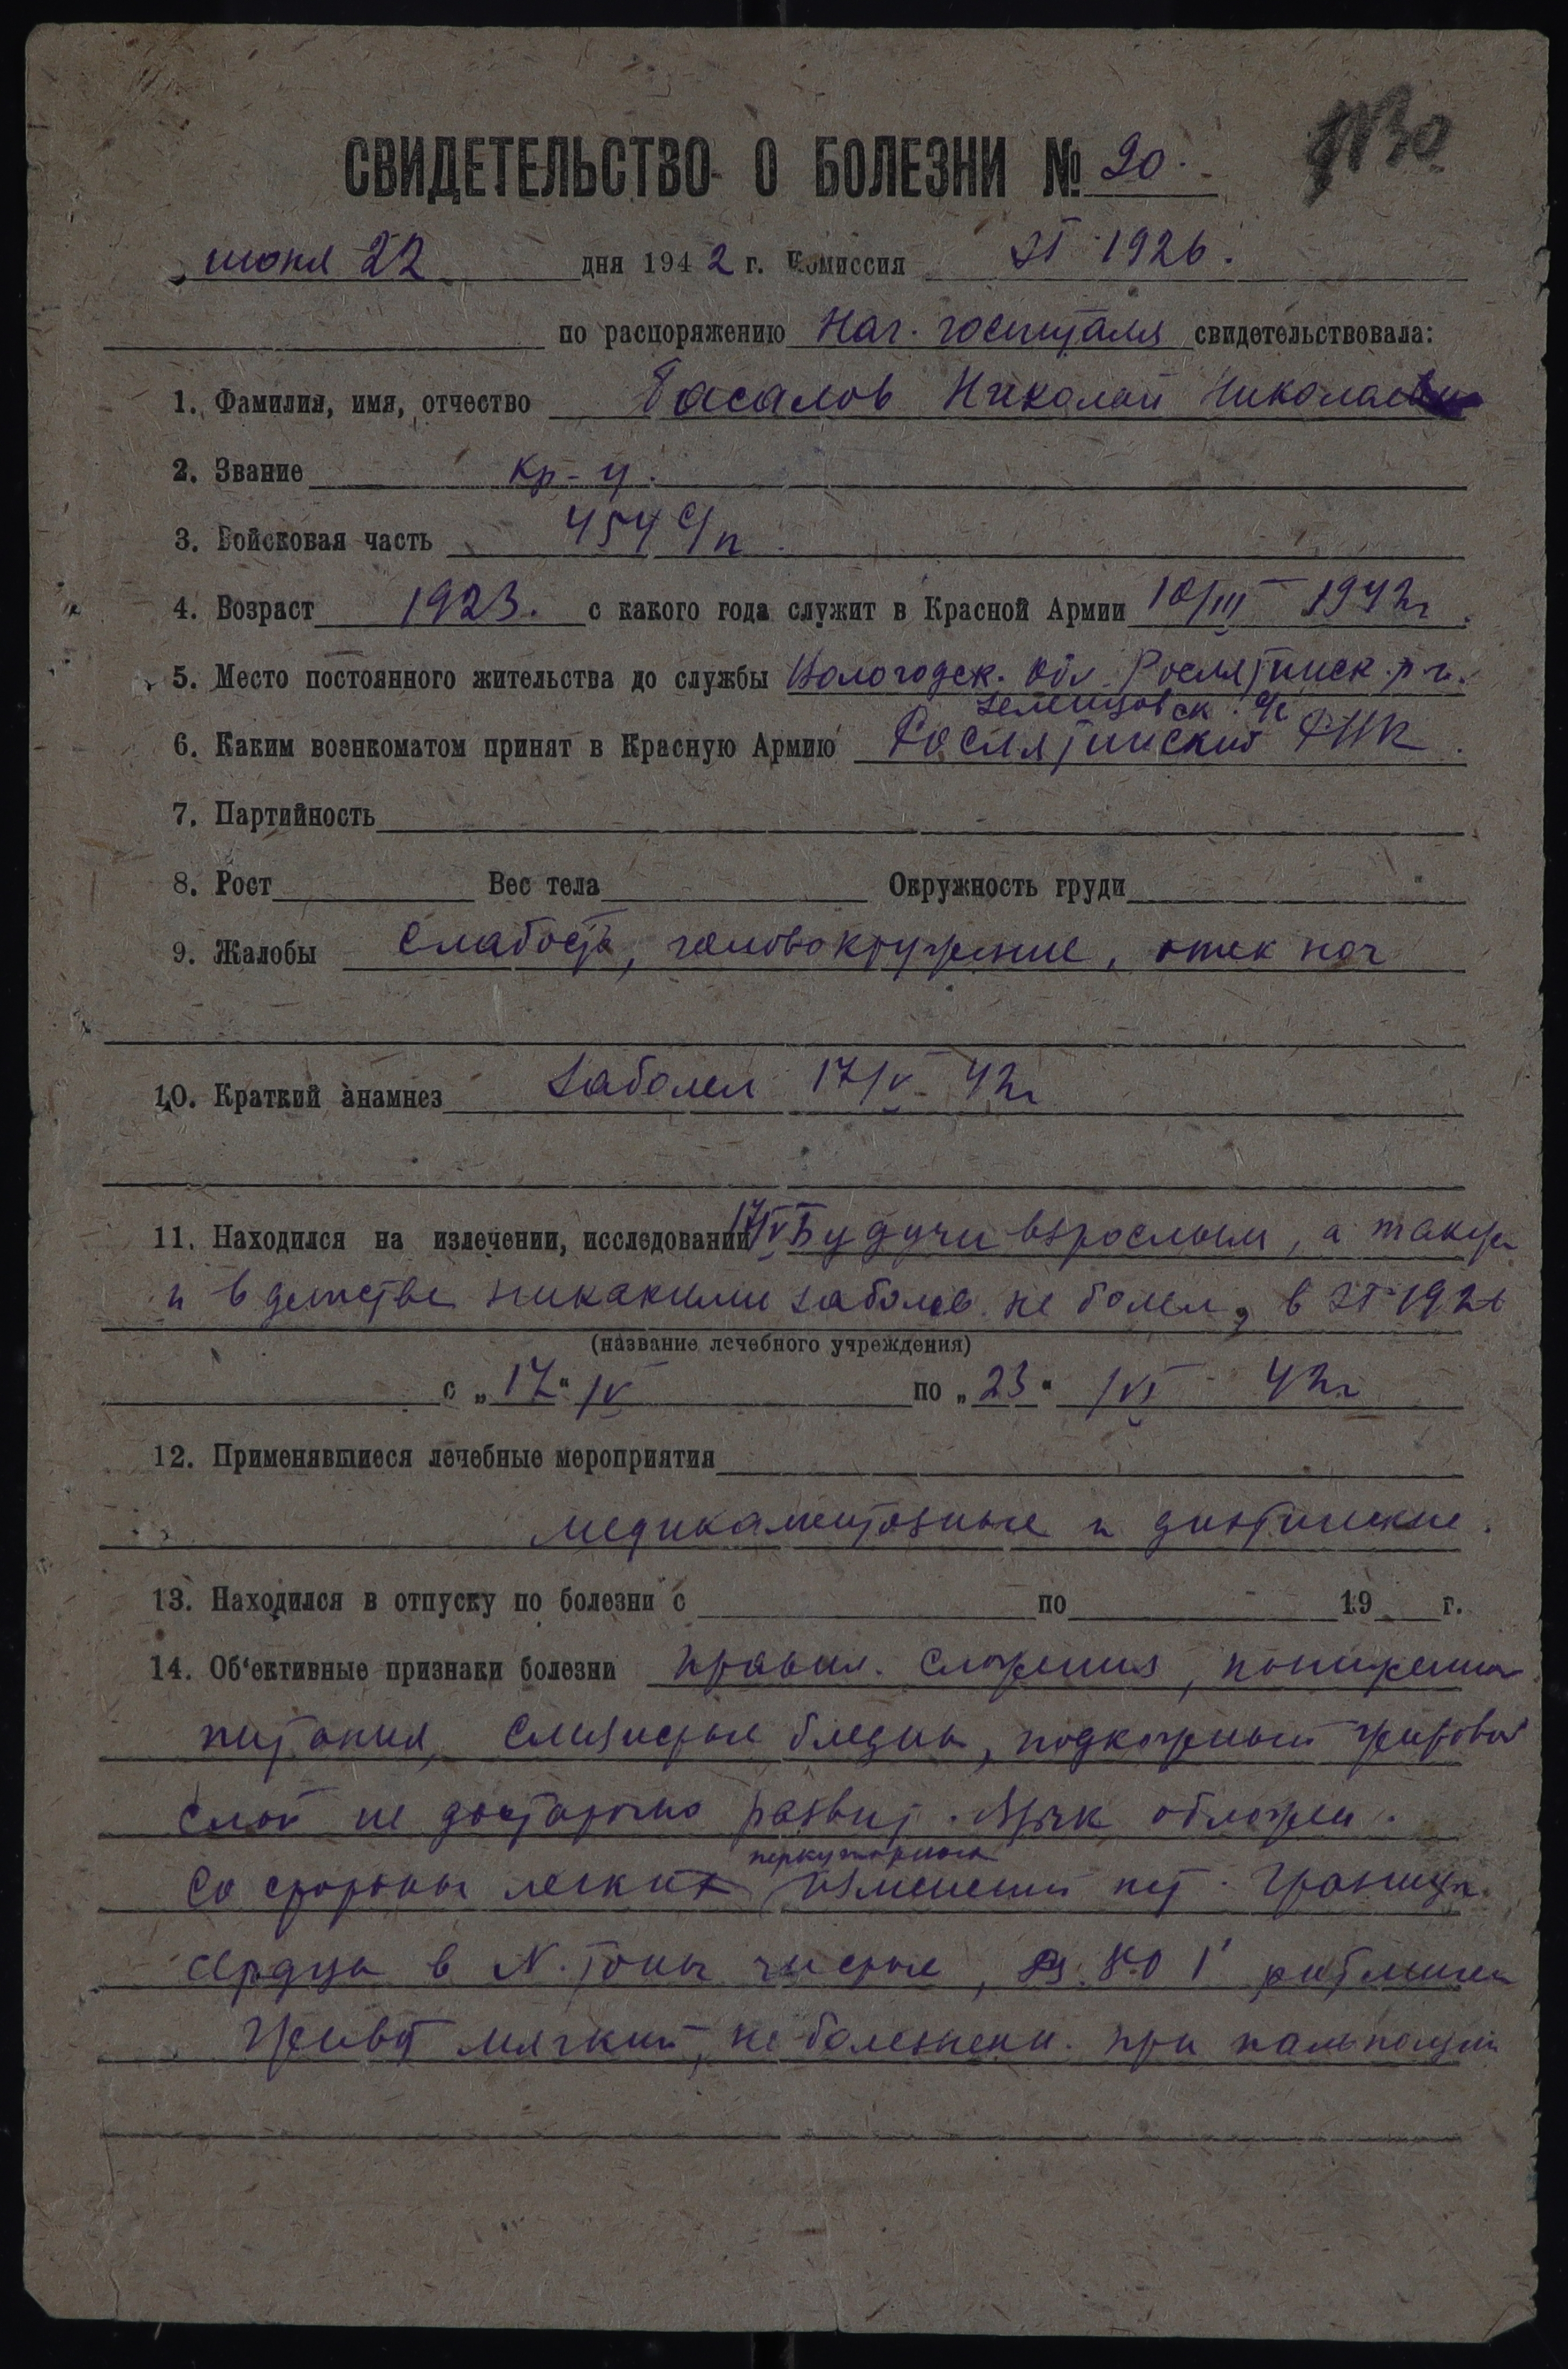 СВИДЕТЕЛЬСТВО О БОЛЕЗНИ № 20.
„июня 22 дня 1942 г. Комиссия ЭГ 1926.
по распоряжению Нач. госпиталя свидетельствовала:
1. Фамилия, имя, отчество Басалов Николай Николаевич
2. Звание кр-ц.
3. Войсковая часть 454 с/п.
4. Возраст 1923. с какого года служит в Красной Армии 10/III 1942г.
5. Место постоянного жительства до службы Вологодск. обл. Рослятинск. р-н.
Зеленцовск. с/с
6. Каким военкоматом принят в Красную Армию Рослятинский РВК.
7. Партийность
8. Рост Вес тела Окружность груди
9. Жалобы Слабость, головокружение, отек ног
10. Краткий анамнез Заболел 17/V- 42г
11. Находился на излечении, исследовании 17/V Будучи взрослым, а также
и в детстве никакими заболев. не болел, в ЭГ 1926
(название лечебного учреждения)
с „17“ /V по „23“ /VI - 42г
12. Применявшиеся лечебные мероприятия
медикаментозные и диэтические.
13. Находился в отпуску по болезни с по 19 г.
14. Об'ективные признаки болезни правил. сложения, пониженного
питания, слизистые бледны, подкожный жировой
слой не достаточно развит. Язык обложен.
перкуторных
Со стороны легких изменений нет. Границы
сердца в N. Тоны чистые, 80 1' ритмичен
Живот мягкий, не болезнен. при пальпации